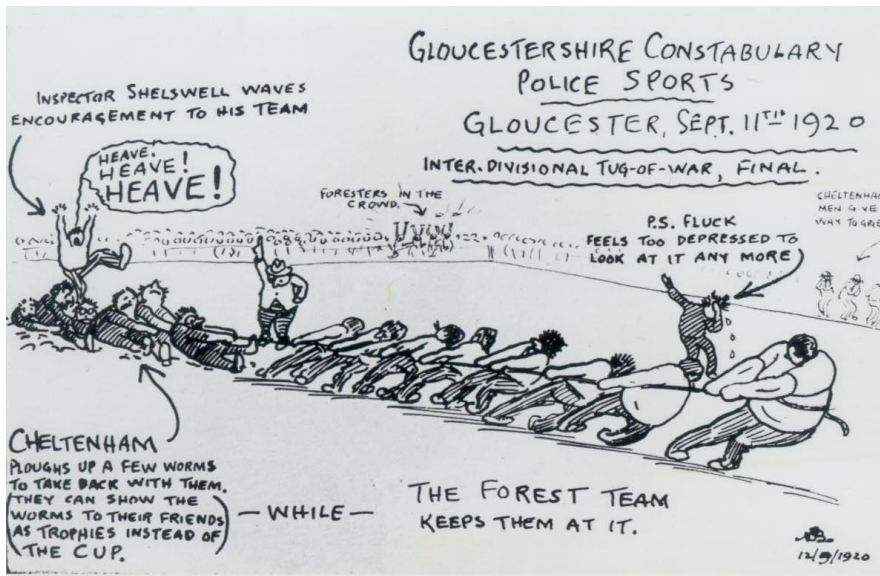 GLOUCESTERSHIRE CONSTABULARY
POLICE SPORTS
GLOUCESTER, SEPT. 11TH 1920
INTER-DIVISIONAL TUG-OF-WAR, FINAL.
INSPECTOR SHELSWELL WAVES
ENCOURAGEMENT TO HIS TEAM
HEAVE.
HEAVE!
HEAVE!
FORESTERS IN THE
CROWD.
P.S. FLUCK
FEELS TOO DEPRESSED TO
LOOK AT IT ANY MORE
CHELTENHAM
MEN GIVE
WAY TO GRIE
CHELTENHAM
PLOUGHS UP A FEW WORMS
TO TAKE BACK WITH THEM.
(THEY CAN SHOW THE
WORMS TO THEIR FRIENDS
AS TROPHIES INSTEAD OF
THE CUP.)
—WHILE—
THE FOREST TEAM
KEEPS THEM AT IT.
12/9/1920